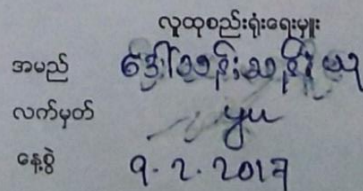 လူထုစည်းရုံးရေးမှူး
အမည် ဒေါ်သန်းသန်းယု
လက်မှတ် yu
နေ့စွဲ ၅.၇.2017